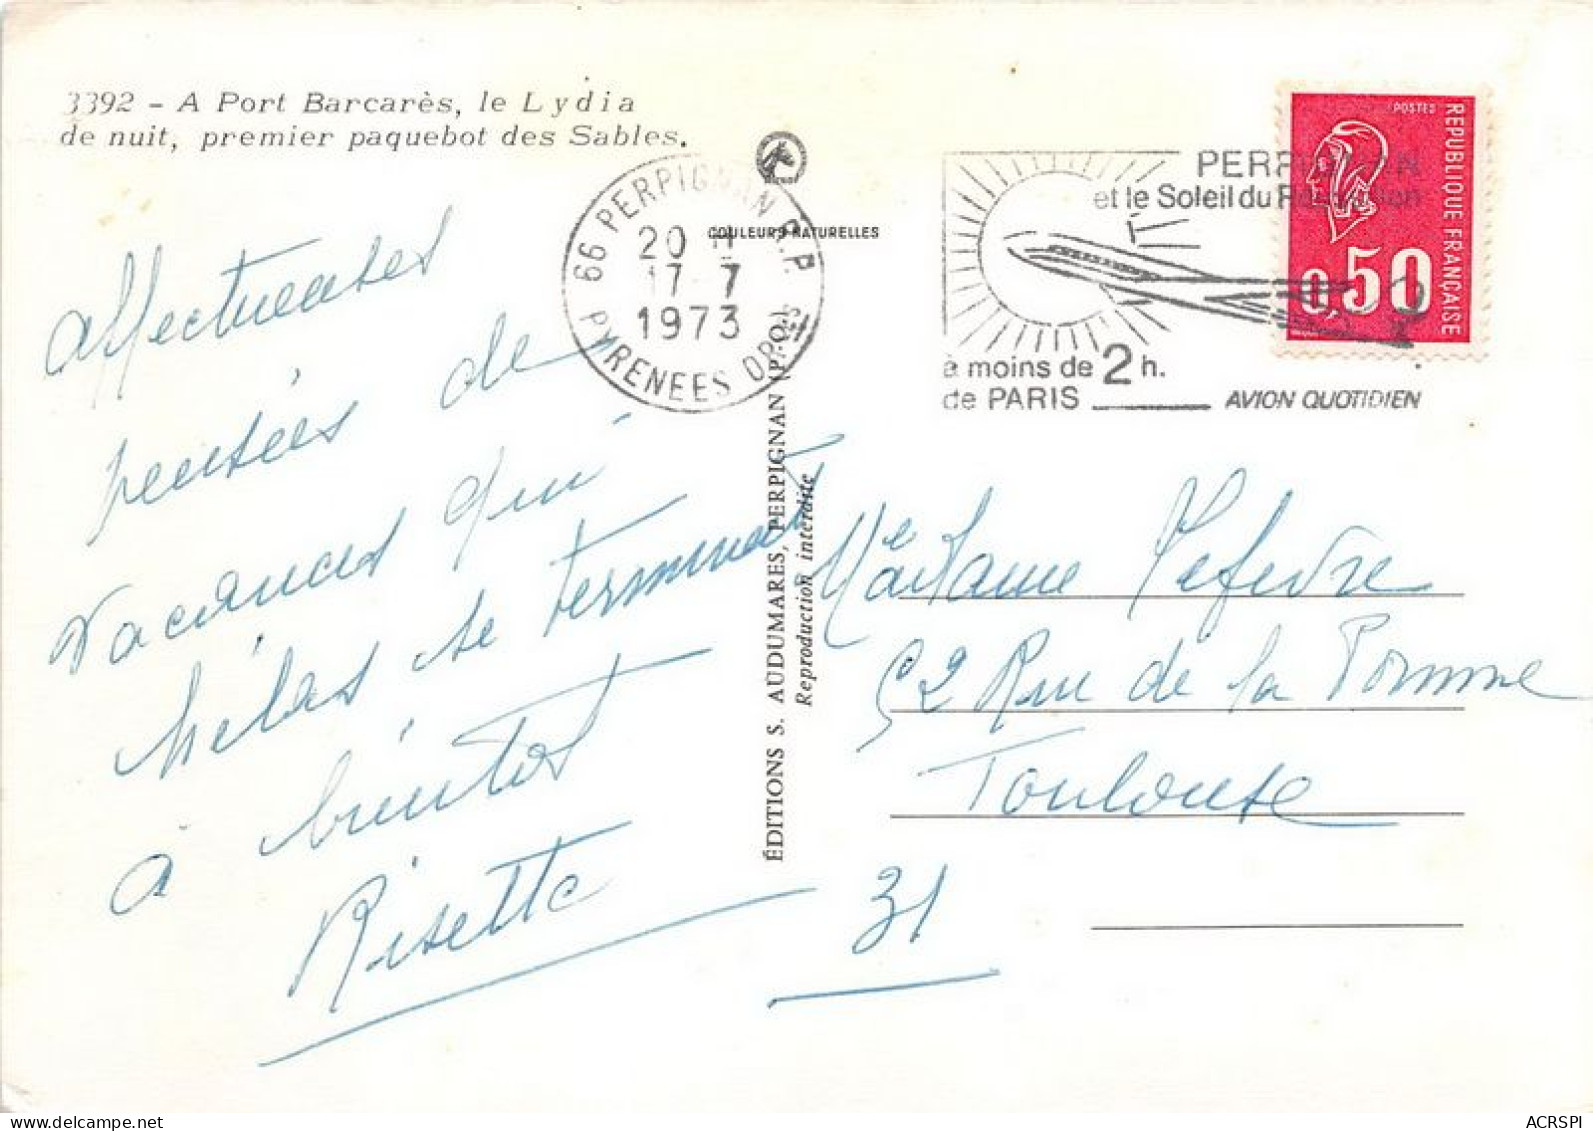 3392 - A Port Barcarès, le Lydia
de nuit, premier paquebot des Sables.
affectueuses
pensées de
vacances qui
hélas se terminent
à bientot
Risette
66 PERPIGNAN R.P.
20 H
17-7
1973
PYRENEES ORles
COULEURS NATURELLES
ÉDITIONS S. AUDUMARES, PERPIGNAN (P.-O.)
Reproduction interdite
PERPIGNAN
et le Soleil du Roussillon
à moins de 2 h.
de PARIS
AVION QUOTIDIEN
POSTES
REPUBLIQUE FRANÇAISE
0,50
Madame Lefevre
52 Rue de la Pomme
Toulouse
31
ACRSPI